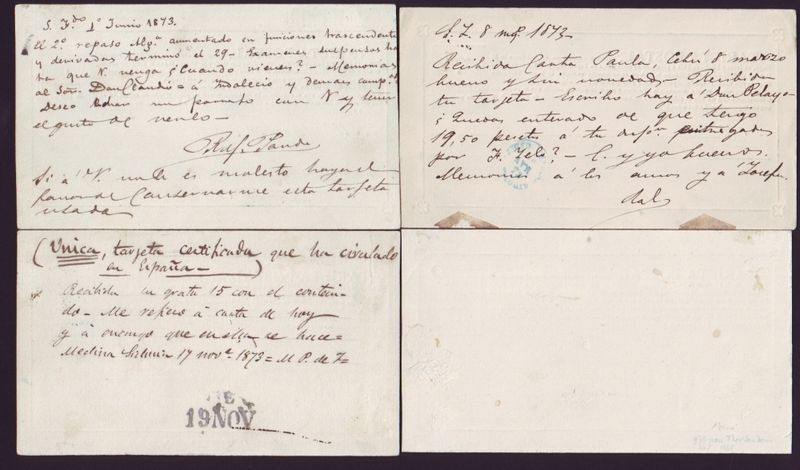 S. F.do 1º Junio 1873.
El 2º repaso Alg.a aumentado en funciones trascendentes
y derivadas terminó el 29 - Examenes suspensos ha
ta que V. venga ¿Cuando vienes? - Memorias
al Sor. Dn Claudio = á Indalecio y demas comp.s
Deseo echar un parrafo con V y tener
el gusto de verlo -
Raf. Pando
Si á V. no le es molesto haga el
favor de Conservarme esta tarjeta
usada
S. F. 8 mzo 1873.
Recibida Carta Paula, 8 marzo
bueno y sin novedad - Recibida
tu tarjeta - Escribo hoy á Dn Pelayo
¿Quedas enterado de que tengo
19,50 pesetas á tu dispon entregadas
por F. ? - C. y yo buenos.
Memorias á los amos y á Josefa.
Raf
(Unica, tarjeta certificada que ha circulado
en España -)
Recibida su grata 15 con el conteni-
do - Me refiero á carta de hoy
y á encargo que en ella se hace =
Medina 17 nove 1873 = M P. de
19 NOV